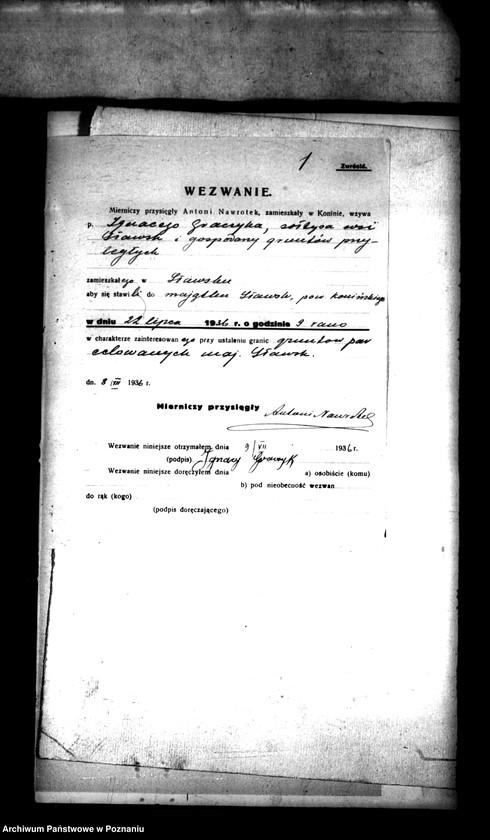 1
Zwrócić.
WEZWANIE.
Mierniczy przysięgły Antoni Nawrotek, zamieszkały w Koninie, wzywa
p. Ignacego Graczyka, sołtysa wsi
Sławsk i gospodarzy gruntów przy-
ległych
zamieszkałego w Sławsku
aby się stawili do majątku Sławsk, pow. konińskiego
w dniu 22 lipca 1936 r. o godzinie 9 rano
w charakterze zainteresowanego przy ustaleniu granic gruntów par
celowanych maj. Sławsk.
dn. 8 VII 1936 r.
Mierniczy przysięgły Antoni Nawrotek
Wezwanie niniejsze otrzymałem dnia 9/VII 1936 r.
(podpis) Ignacy Graczyk
Wezwanie niniejsze doręczyłem dnia a) osobiście (komu)
b) pod nieobecność wezwan
do rąk (kogo)
(podpis doręczającego)
Archiwum Państwowe w Poznaniu